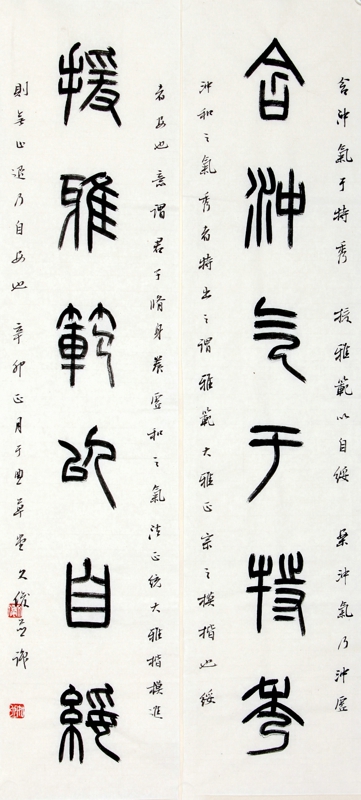 含沖氣于特秀 援雅範以自綏 案沖氣乃沖虛
含沖气于特秀
沖和之氣秀者特出之謂雅範大雅正宗之模楷也綏
者安也意謂君子脩身養虛和之氣法正統大雅楷模進
援雅範以自綏
則退乃自安也 辛卯正月于草堂